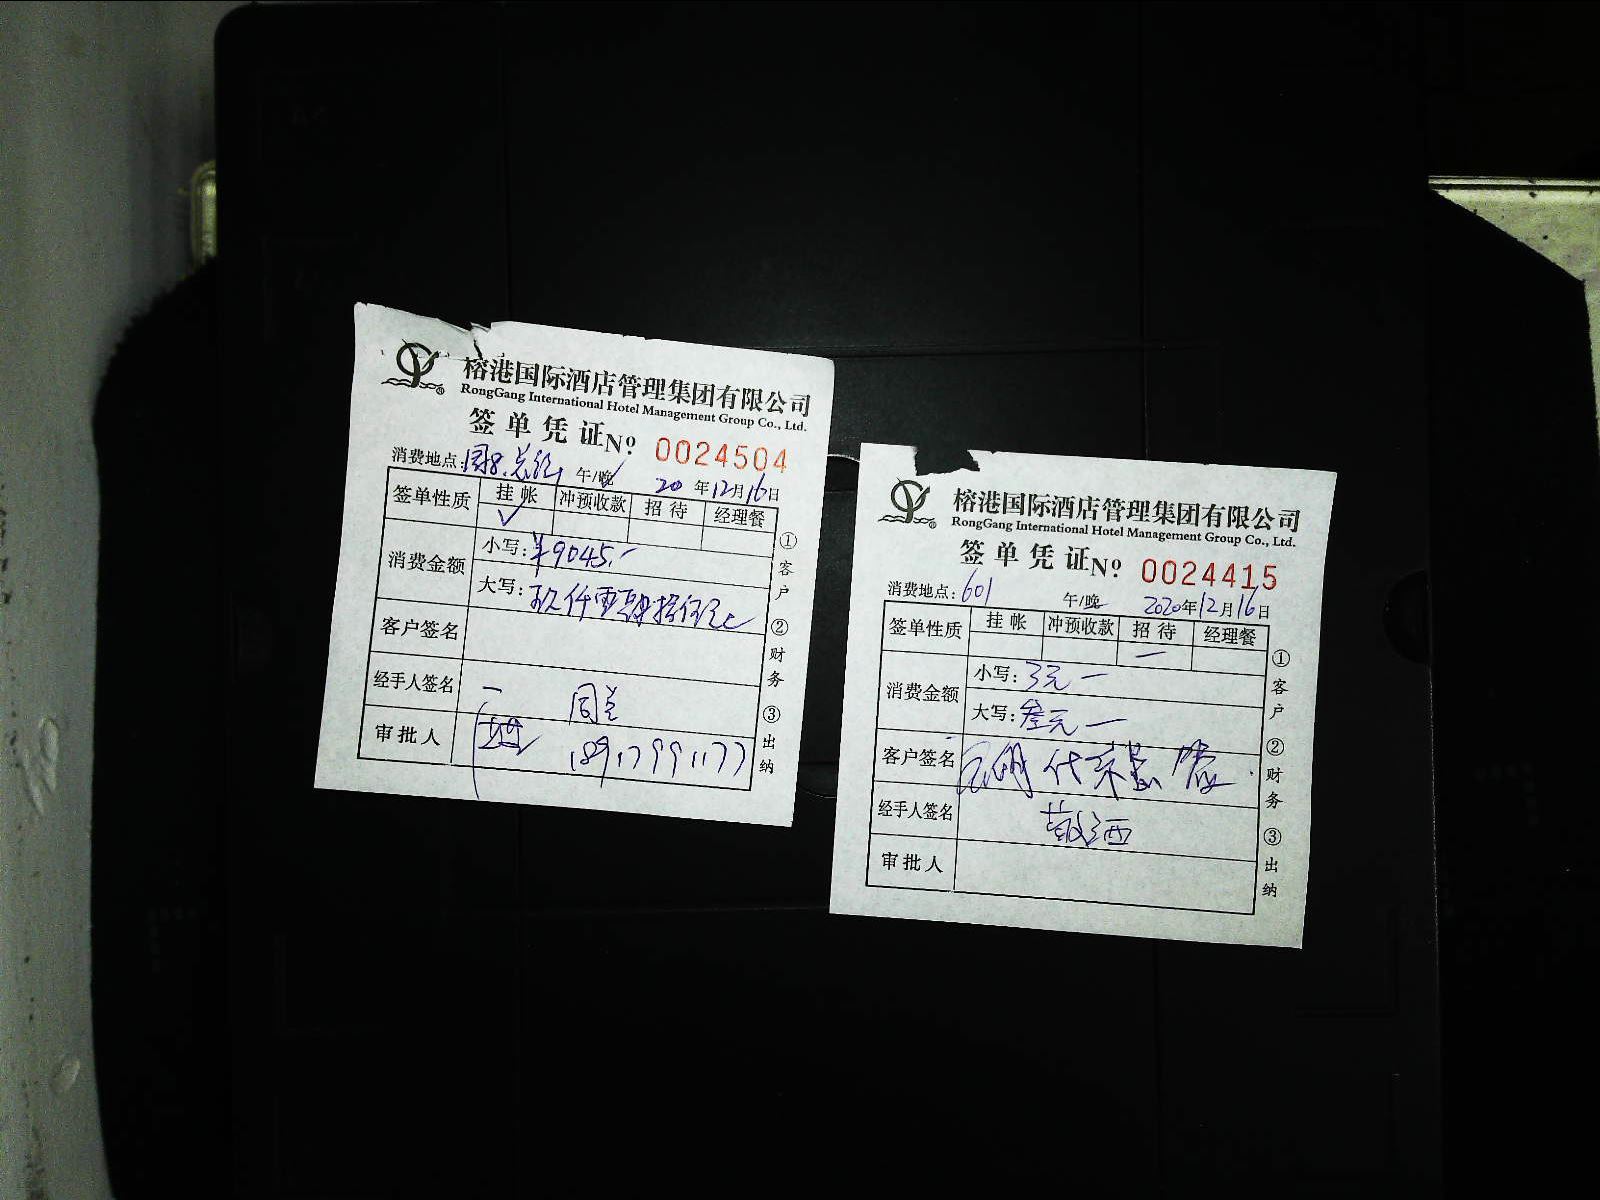 榕港国际酒店管理集团有限公司
RongGang International Hotel Management Group Co., Ltd.
签单凭证 Nº 0024504
消费地点: 午/晚 20年12月16日
签单性质 挂帐 冲预收款 招待 经理餐
✓
消费金额 小写: ¥9045.-
大写: 玖仟零肆拾伍元
客户签名
经手人签名
审批人 18917991177
①客户 ②财务 ③出纳
榕港国际酒店管理集团有限公司
RongGang International Hotel Management Group Co., Ltd.
签单凭证 Nº 0024415
消费地点: 601 午/晚 2020年12月16日
签单性质 挂帐 冲预收款 招待 经理餐
消费金额 小写: 3元一
大写: 叁元一
客户签名 代
经手人签名 敬酒
审批人
①客户 ②财务 ③出纳